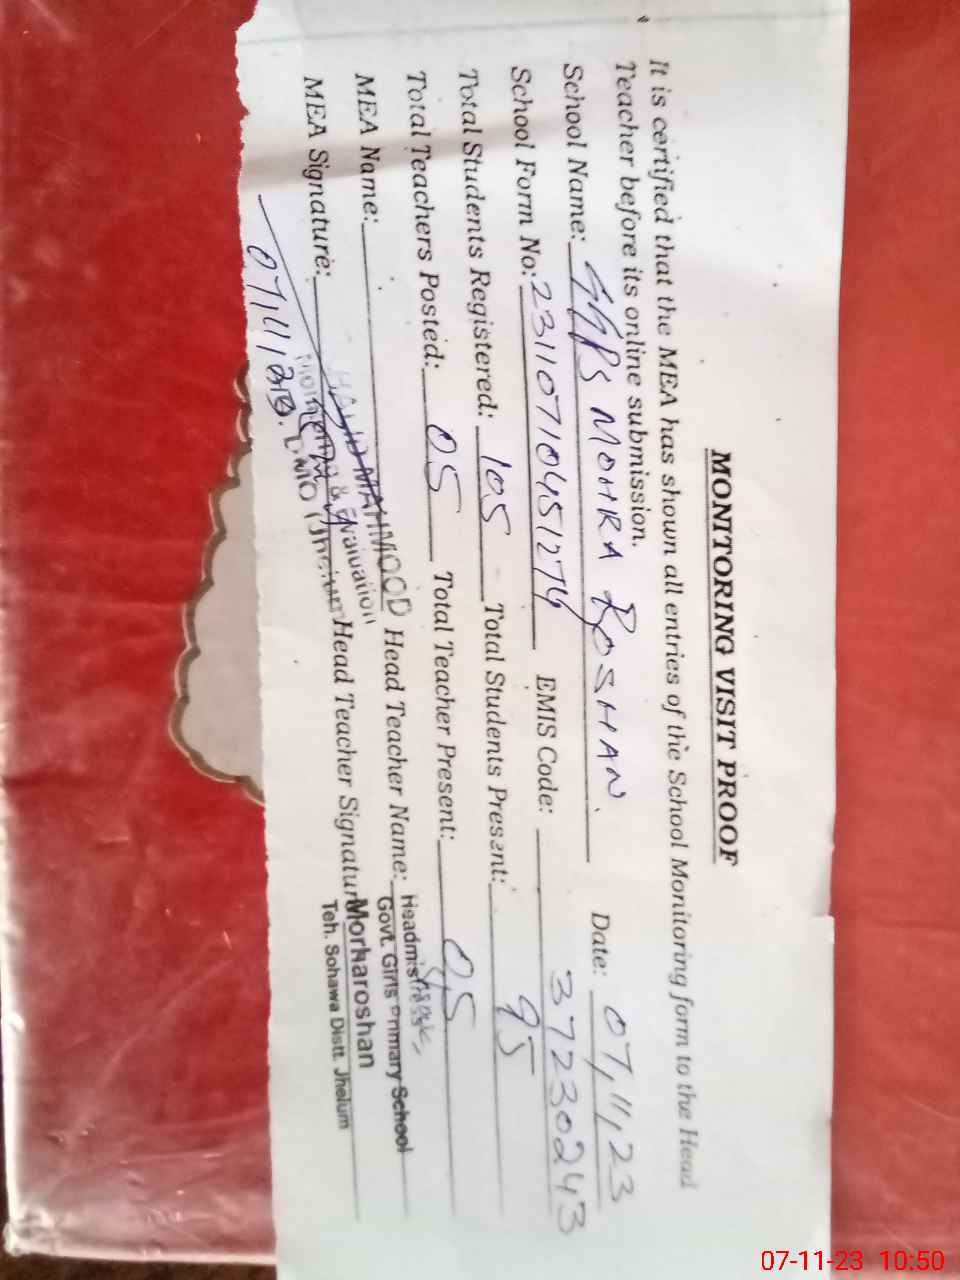 MONITORING VISIT PROOF
It is certified that the MEA has shown all entries of the School Monitoring form to the Head
Teacher before its online submission.
School Name: GGPS MOHRA ROSHAN. Date: 07,11,23
School Form No: EMIS Code: 37230243
Total Students Registered: 105 Total Students Present: 95
Total Teachers Posted: 05 Total Teacher Present: 05
MEA Name: MAHMOOD Head Teacher Name: Headmistress
Govt. Girls Primary School
MEA Signature: Monitoring & Evaluation Head Teacher Signature Morharoshan
Teh. Sohawa Distt. Jhelum
07-11-23 10:50